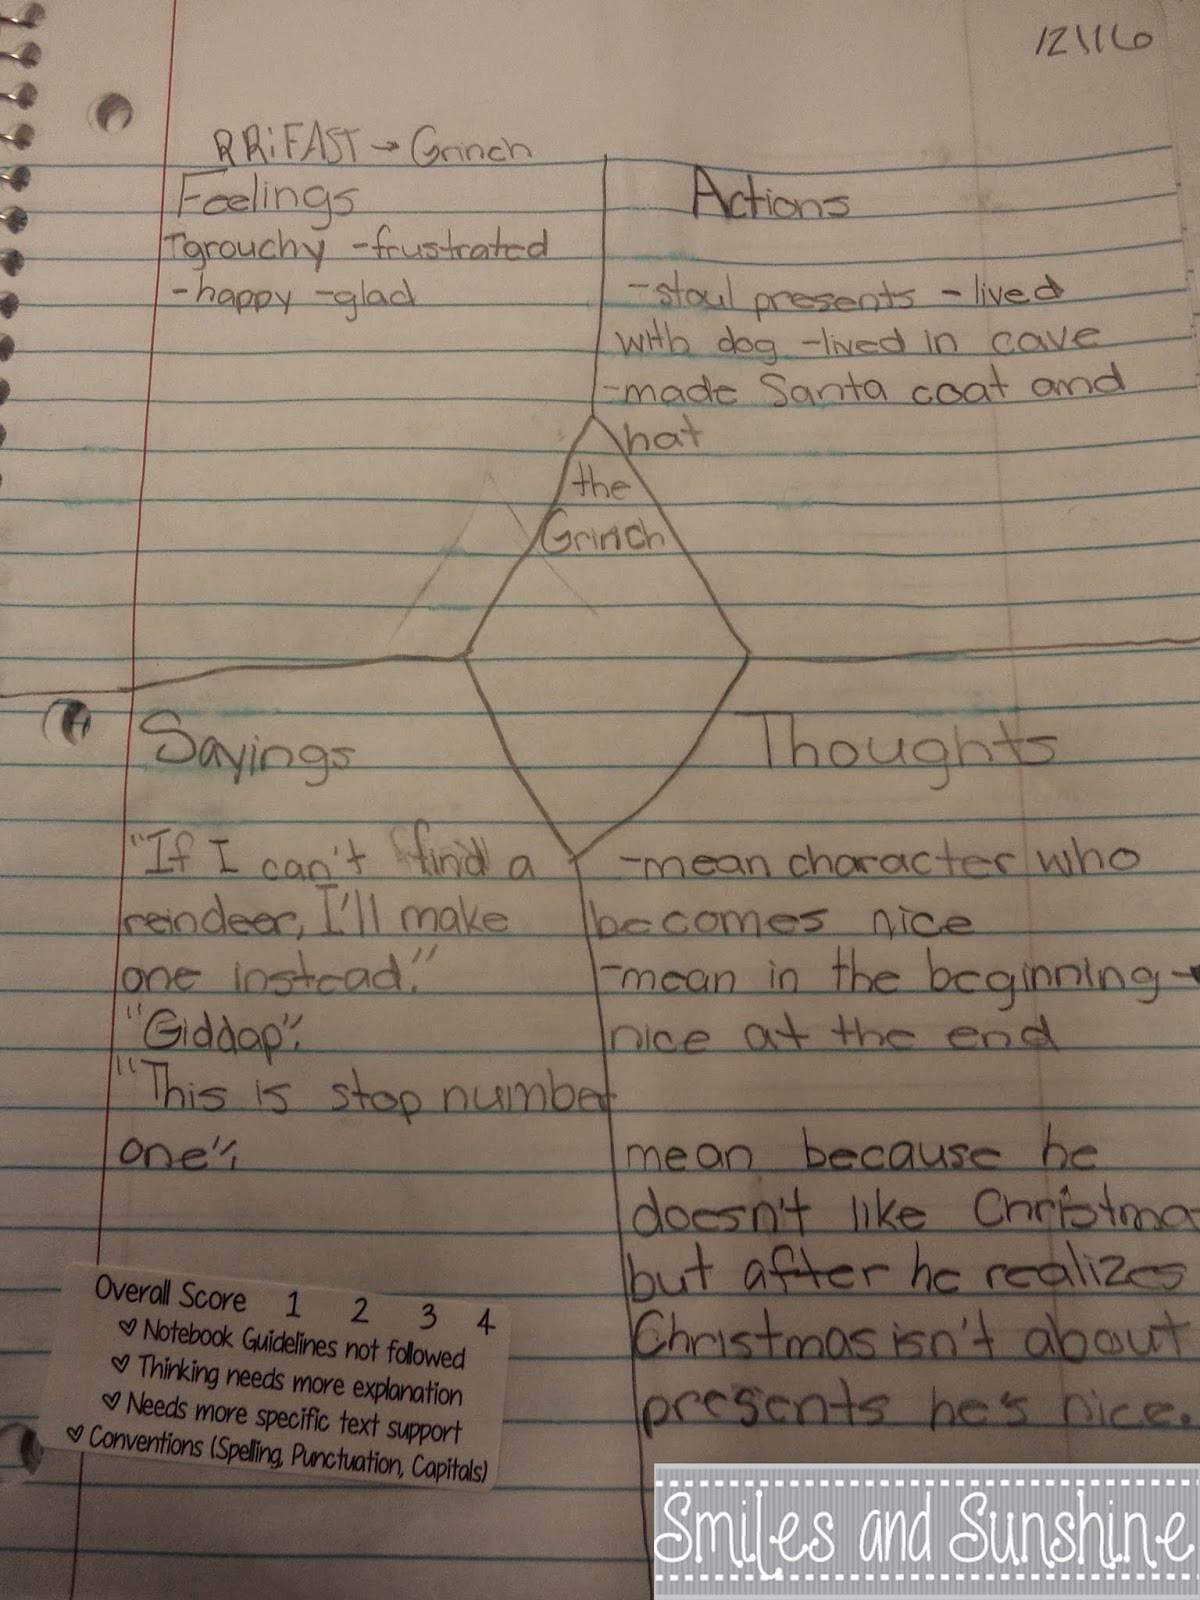 12\16
RRiFAST → Grinch
Feelings
-grouchy -frustrated
-happy -glad
Actions
-stoul presents -lived
with dog -lived in cave
-made Santa coat and
hat
the
Grinch
Sayings
"If I can't find a
reindeer, I'll make
one instead."
"Giddap".
"This is stop number
one",
Thoughts
-mean character who
becomes nice
-mean in the beginning →
nice at the end
mean because he
doesn't like Christma
but after he realizes
Christmas isn't about
presents he's nice.
Overall Score 1 2 3 4
♡ Notebook Guidelines not followed
♡ Thinking needs more explanation
♡ Needs more specific text support
♡ Conventions (Spelling, Punctuation, Capitals)
Smiles and Sunshine